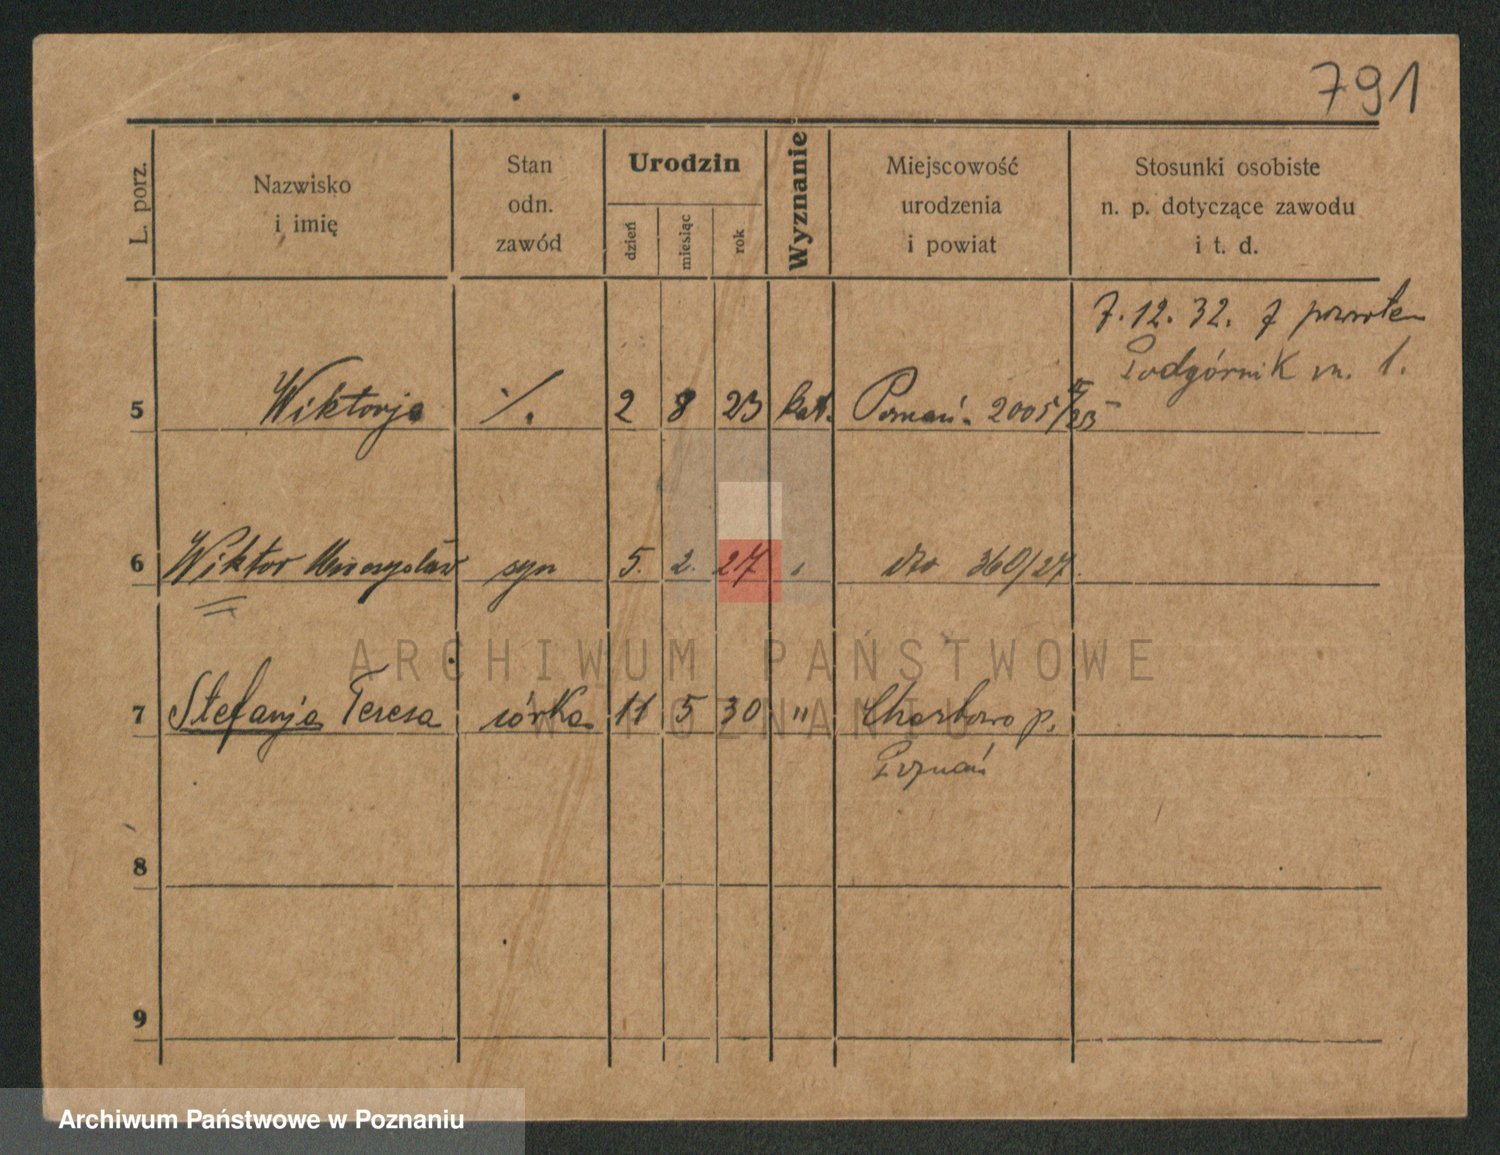 791
L. porz.
Nazwisko
i imię
Stan
odn.
zawód
Urodzin
dzień
miesiąc
rok
Wyznanie
Miejscowość
urodzenia
i powiat
Stosunki osobiste
n. p. dotyczące zawodu
i t. d.
7.12.32. z powrotem
Podgórnik m. 1.
5 Wiktorja ./. 2 8 23 kat. Poznań. 2005
6 Wiktor Mieczysław syn 5. 2. 27 dto 360/27.
7 Stefanja Teresa córka 11 5 30 " Charbowo p.
Poznań
8
9
ARCHIWUM PAŃSTWOWE
W POZNANIU
Archiwum Państwowe w Poznaniu